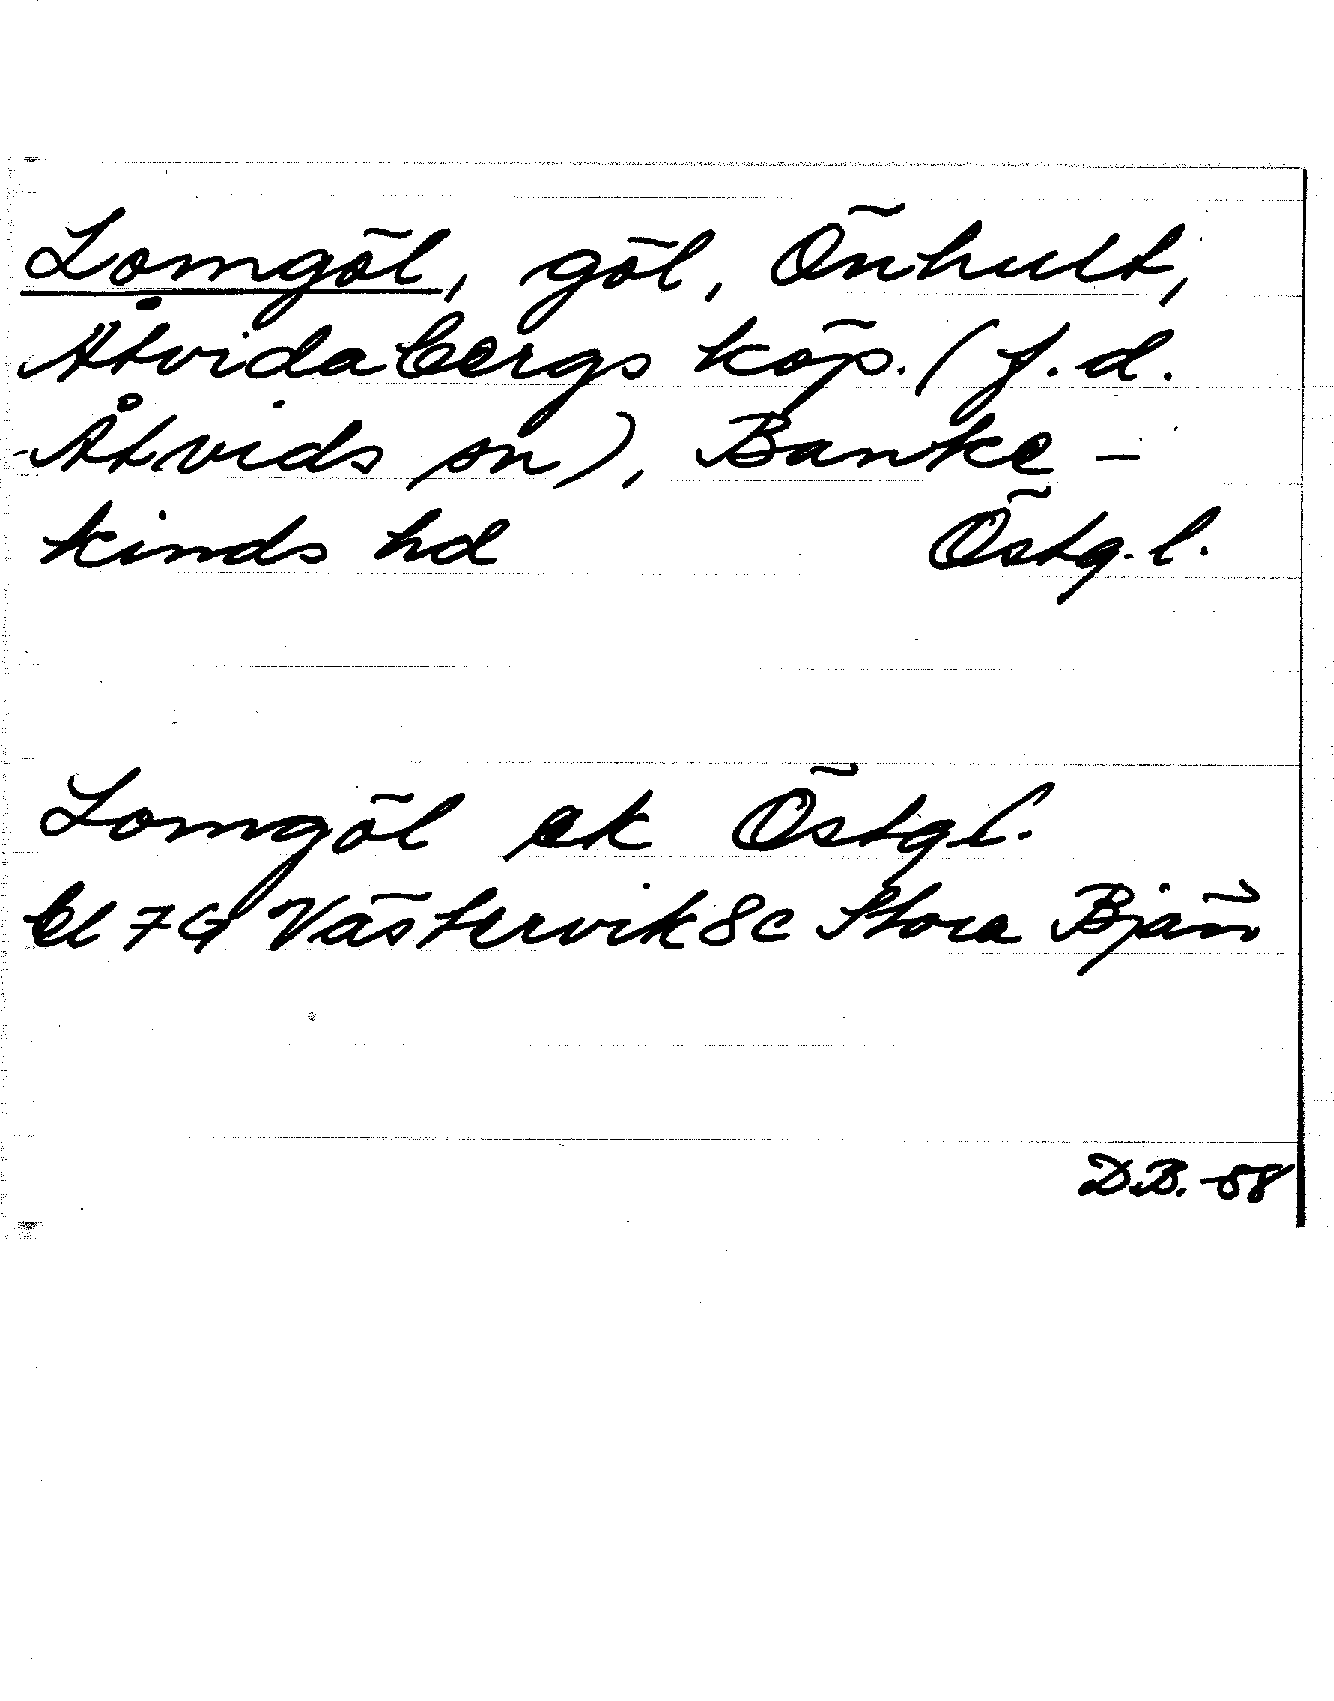 Lomgöl, göl, Önhult,
Åtvidabergs köp. (f.d.
Åtvids sn), Banke-
kinds hd Östg.l.
Lomgöl ek Östgl.
bl 7G Västervik 8c Stora Bjän
D.B. -58